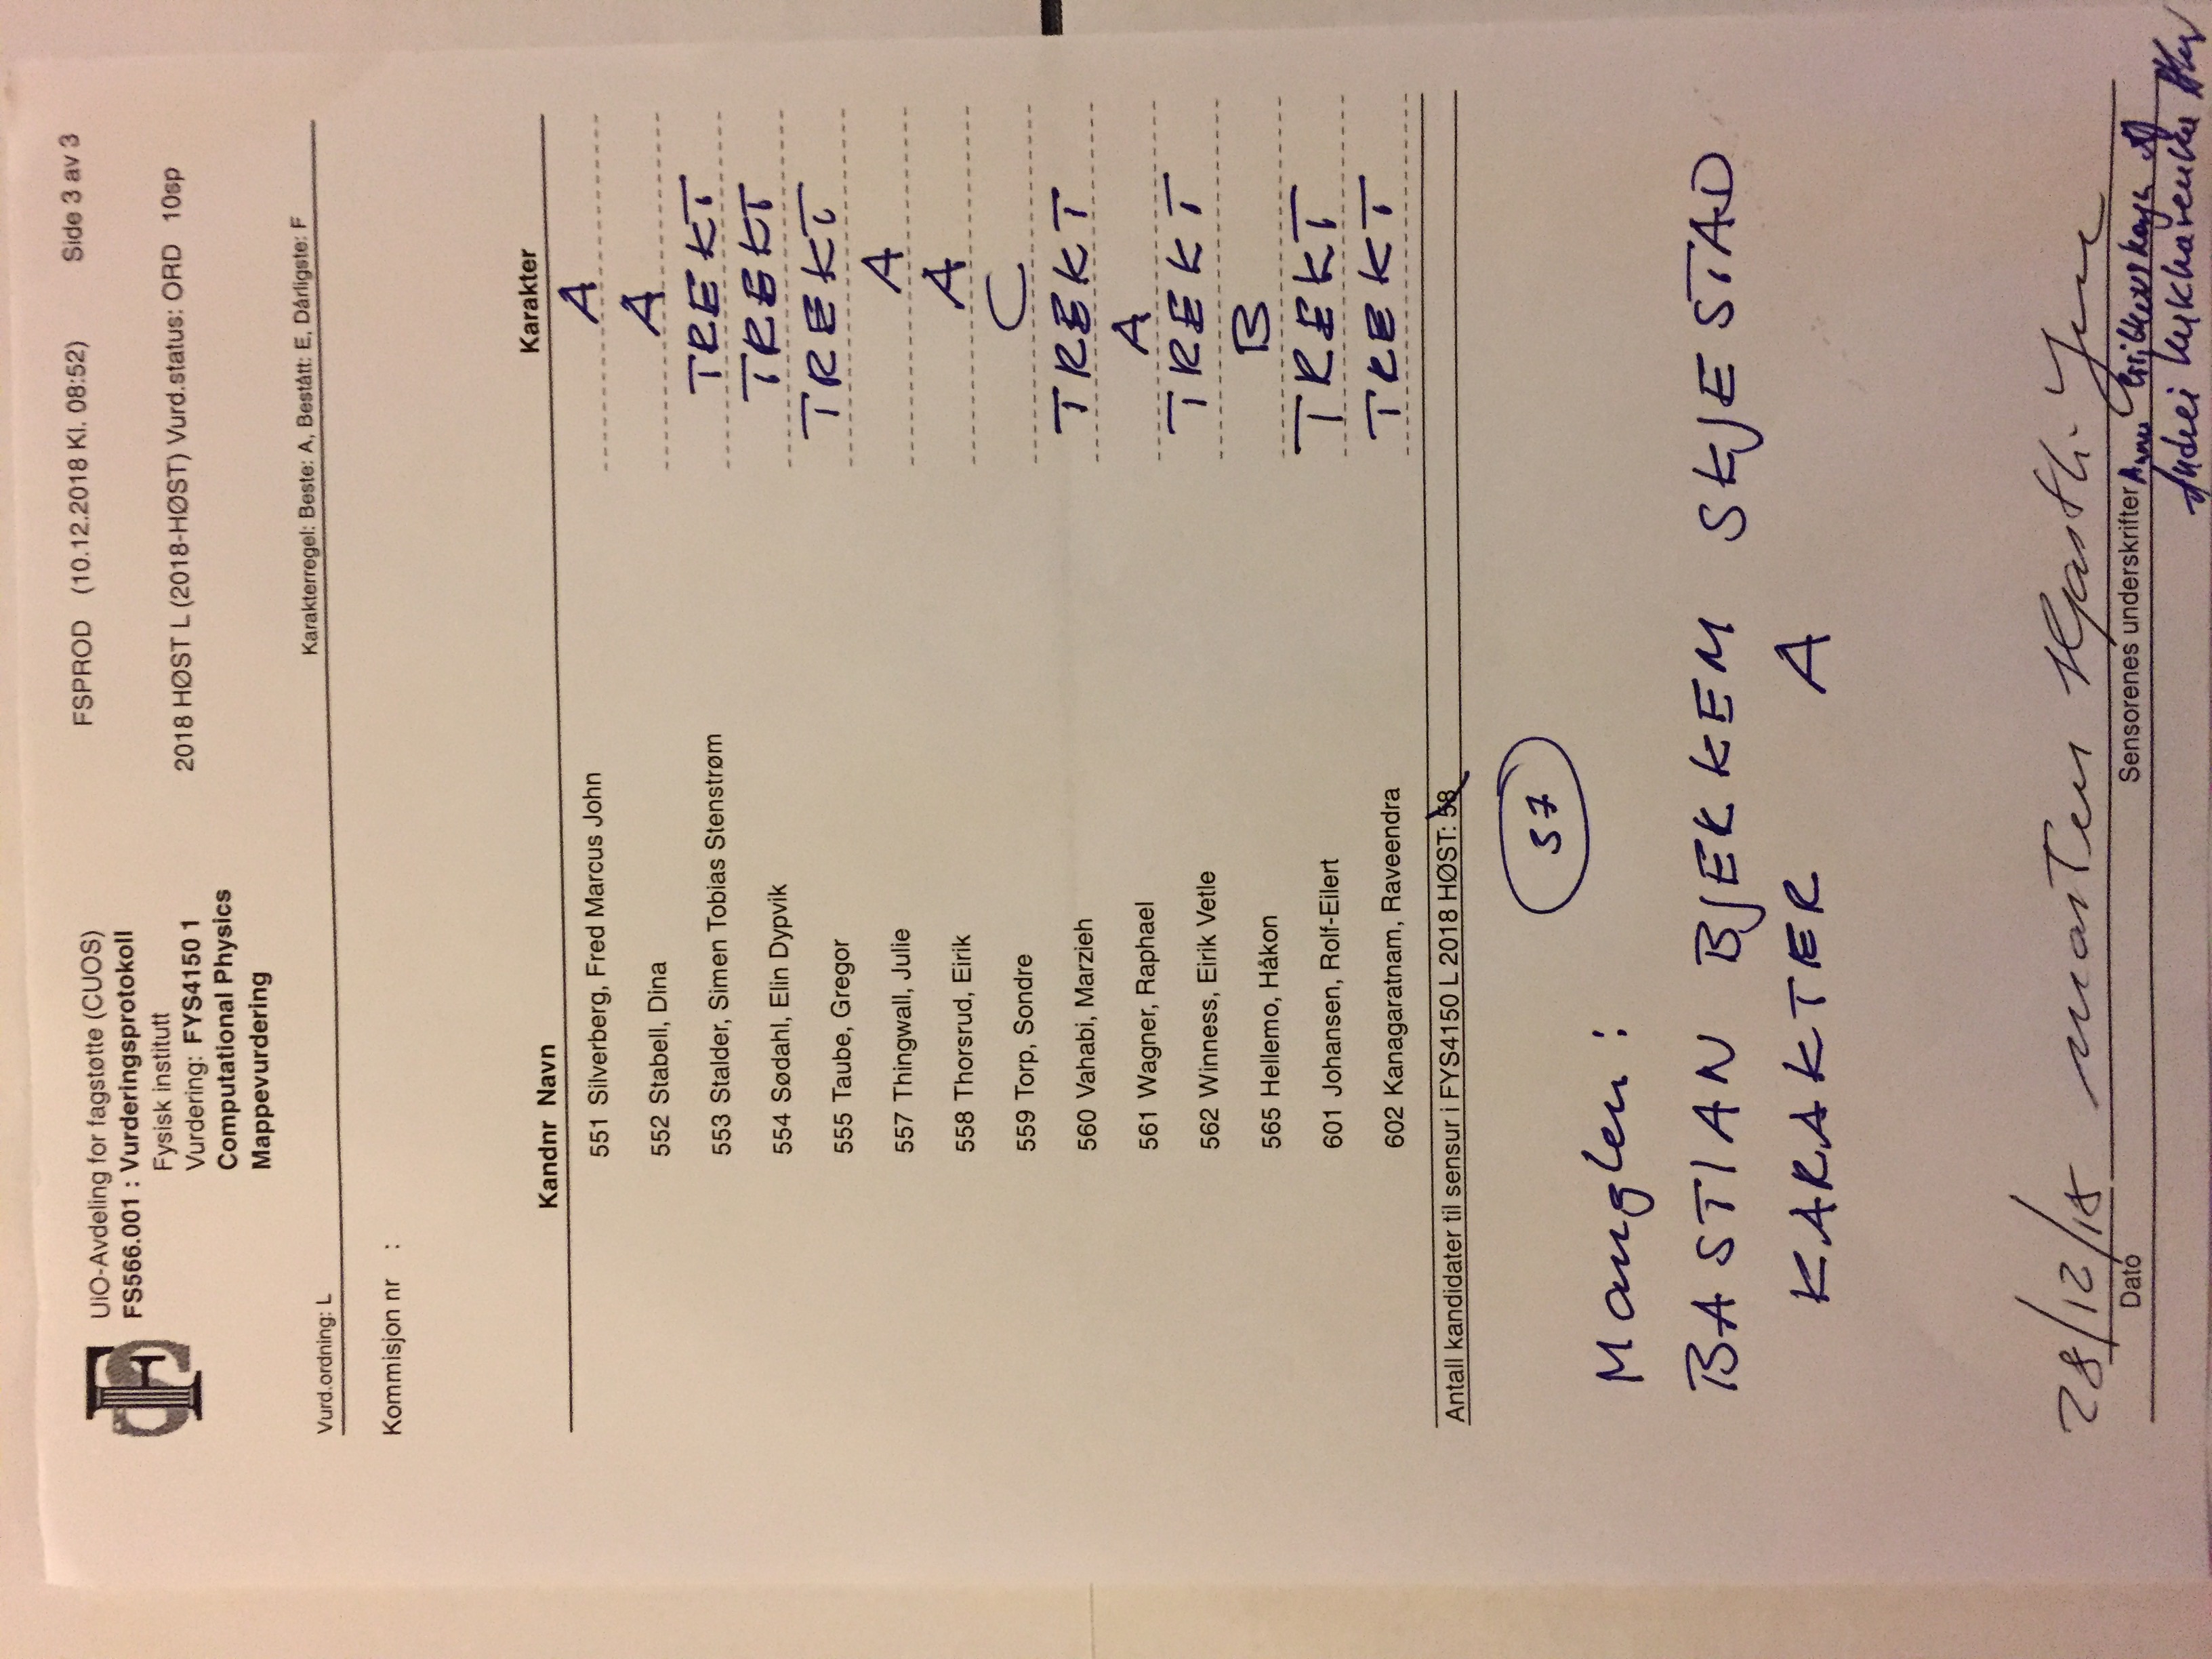 FSPROD (10.12.2018 Kl. 08:52) Side 3 av 3
UiO-Avdeling for fagstøtte (CUOS)
FS566.001 : Vurderingsprotokoll
Fysisk institutt
Vurdering: FYS4150 1 2018 HØST L (2018-HØST) Vurd.status: ORD 10sp
Computational Physics
Mappevurdering
Vurd.ordning: L Karakterregel: Beste: A, Bestått: E, Dårligste: F
Kommisjon nr :
Kandnr Navn Karakter
551 Silverberg, Fred Marcus John A
552 Stabell, Dina A
553 Stalder, Simen Tobias Stenstrøm TREKT
554 Sødahl, Elin Dypvik TREKT
555 Taube, Gregor TREKT
557 Thingwall, Julie A
558 Thorsrud, Eirik A
559 Torp, Sondre C
560 Vahabi, Marzieh TREKT
561 Wagner, Raphael A
562 Winness, Eirik Vetle TREKT
565 Hellemo, Håkon B
601 Johansen, Rolf-Eilert TREKT
602 Kanagaratnam, Raveendra TREKT
Antall kandidater til sensur i FYS4150 L 2018 HØST: 58
37
Manglen:
BASTIAN BJEKKEM SKJESTAD
KARAKTER A
28/12/18 Morten Hjorth-Jensen
Dato Sensorenes underskrifter
Andrei Kukharenka